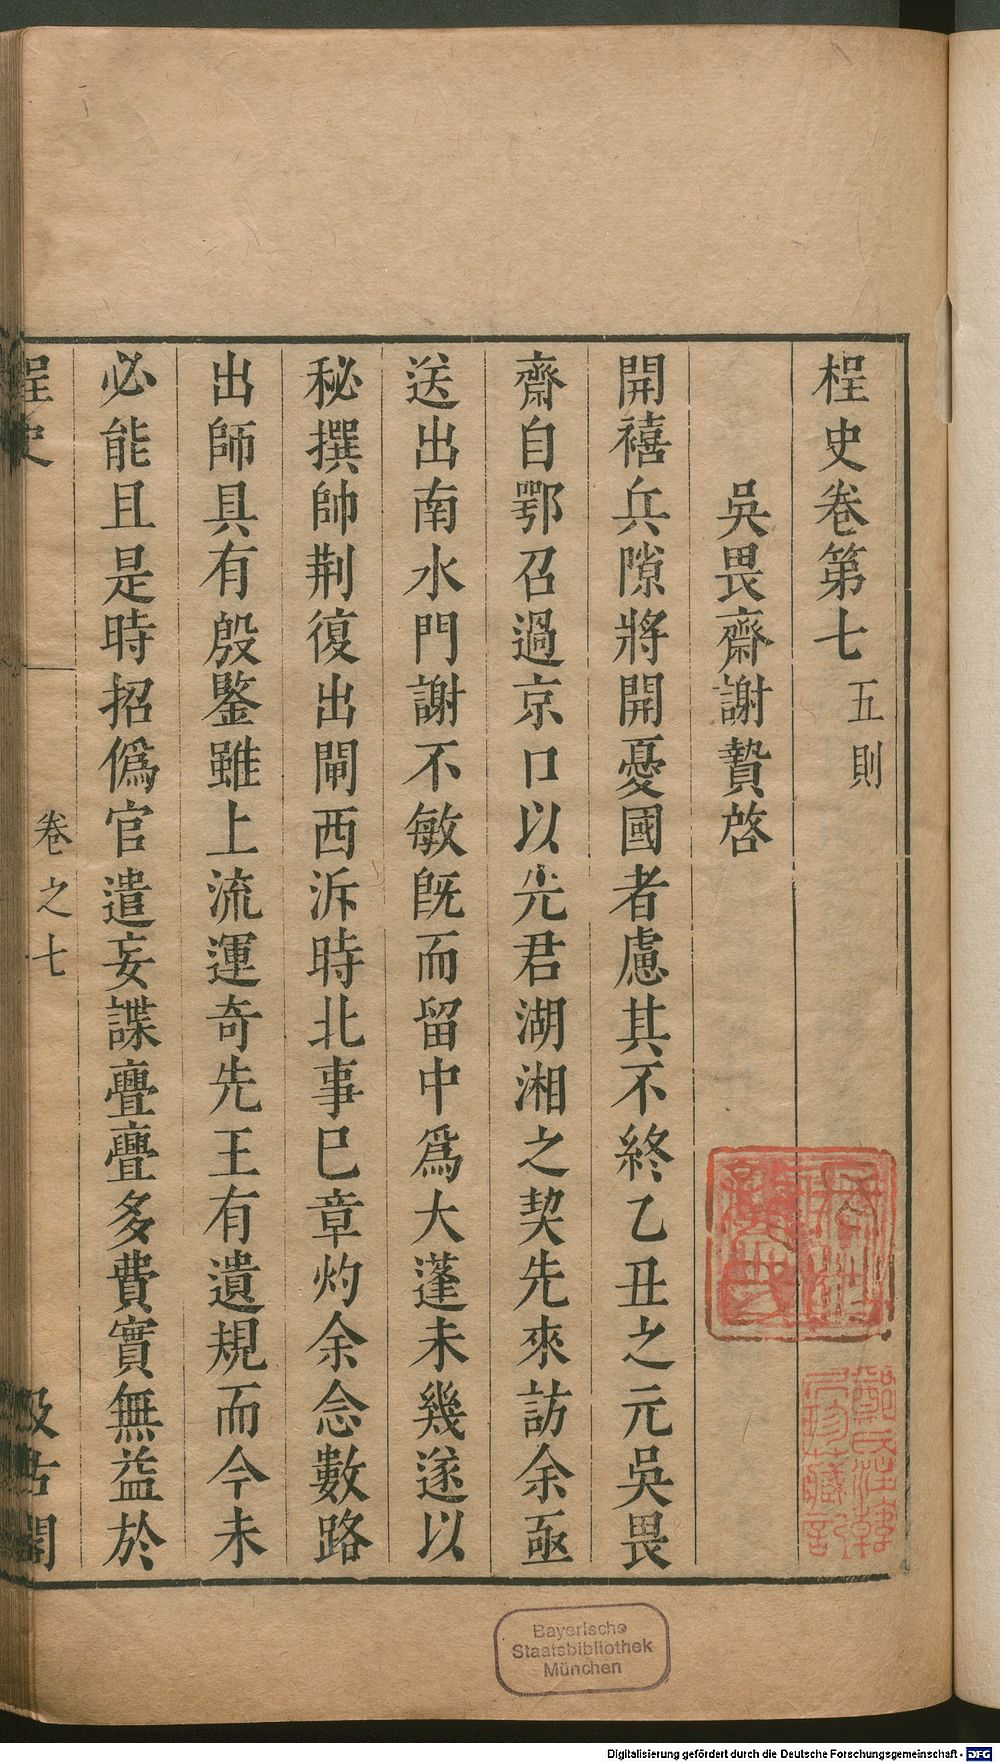 桯史卷第七 五則
吳畏齋謝贄啓
開禧兵隙將開憂國者慮其不終乙丑之元吳畏
齋自鄂召過京口以先君湖湘之契先來訪余亟
送出南水門謝不敏旣而留中爲大蓬未幾遂以
秘撰帥荆復出閘西泝時北事巳章灼余念數路
出師具有殷鑒雖上流運奇先王有遺規而今未
必能且是時招僞官遣妄諜亹亹多費實無益於
桯史 卷之七 汲古閣
Bayerische
Staatsbibliothek
München
Digitalisierung gefördert durch die Deutsche Forschungsgemeinschaft - DFG